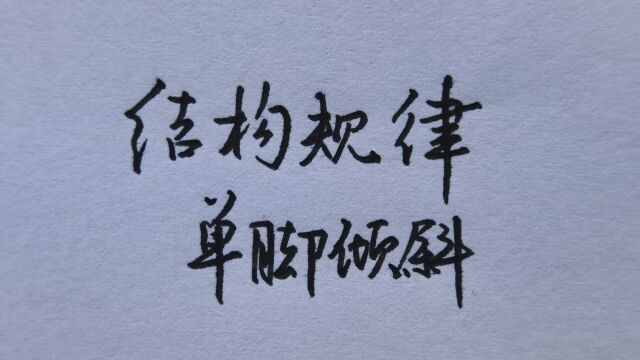 结构规律
单脚倾斜